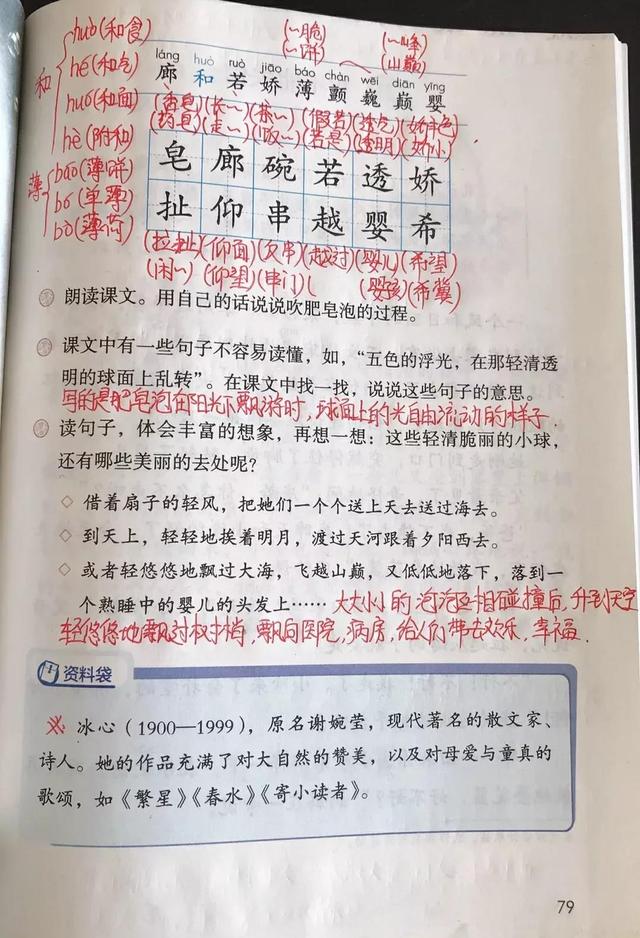 (~脆)
(~饼)
(~峰)
(山巅)
láng huò ruò jiāo báo chàn wēi diān yīng
廊 和 若 娇 薄 颤 巍 巅 婴
和
(和食)
hé(和气)
huó(和面)
hè(附和)
薄
báo(薄饼)
bó(单薄)
bò(薄荷)
(香皂)(长~)(茶~)(假若)(透气)
(药皂)(走~)(饭~)(若是)(透明)(娇小)
皂 廊 碗 若 透 娇
扯 仰 串 越 婴 希
(拉扯)(仰面)(越过)(婴儿)(希望)
(闲~)(仰望)(串门)(婴孩)(希冀)
朗读课文。用自己的话说说吹肥皂泡的过程。
课文中有一些句子不容易读懂，如，“五色的浮光，在那轻清透
明的球面上乱转”。在课文中找一找，说说这些句子的意思。
写的是肥皂泡在阳光下飘游时，球面上的光自由流动的样子.
读句子，体会丰富的想象，再想一想：这些轻清脆丽的小球，
还有哪些美丽的去处呢？
◇ 借着扇子的轻风，把她们一个个送上天去送过海去。
◇ 到天上，轻轻地挨着明月，渡过天河跟着夕阳西去。
◇ 或者轻悠悠地飘过大海，飞越山巅，又低低地落下，落到一
个熟睡中的婴儿的头发上……大大小小的泡泡互相碰撞后，升到天空
轻悠悠地飘过树梢，飘向医院，病房，给人们带去欢乐，幸福.
资料袋
冰心（1900—1999），原名谢婉莹，现代著名的散文家、
诗人。她的作品充满了对大自然的赞美，以及对母爱与童真的
歌颂，如《繁星》《春水》《寄小读者》。
79